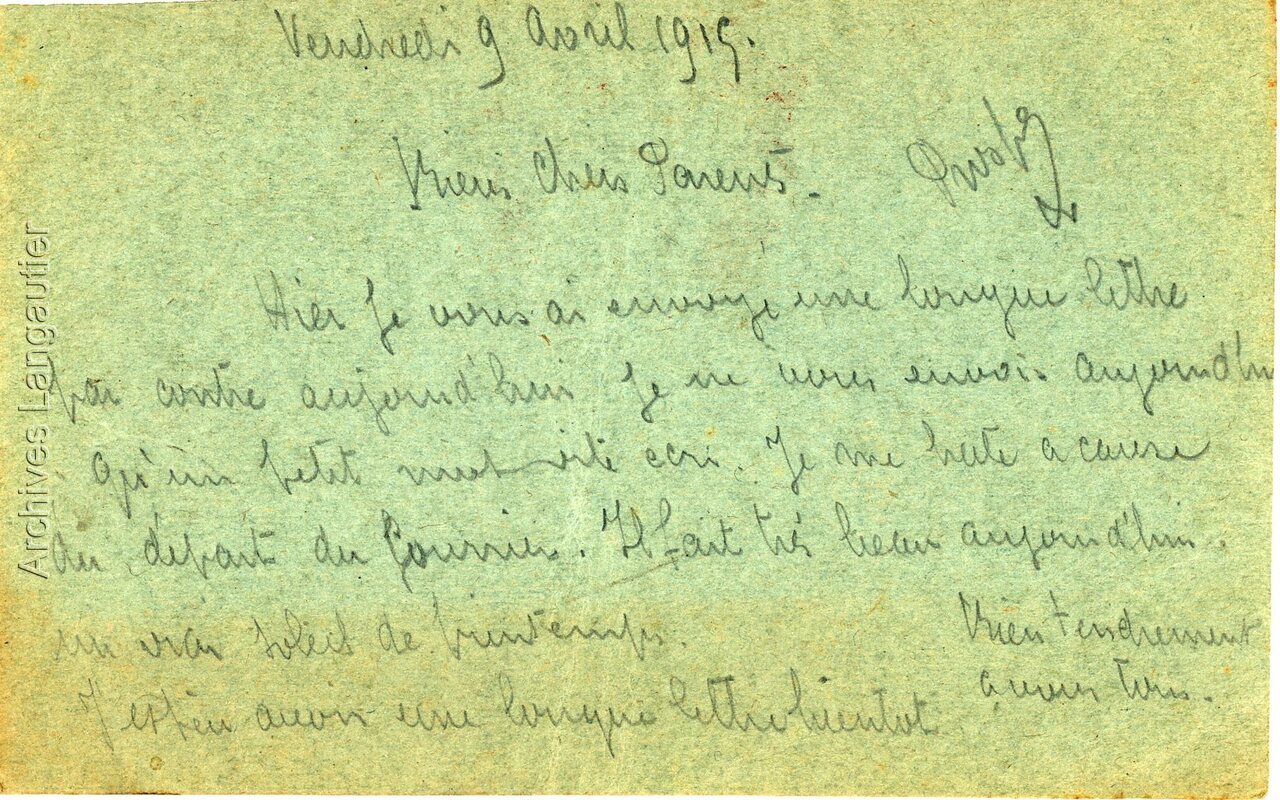 Vendredi 9 Avril 1915.
Biens Chers Parents.
Hier je vous ai envoyé une longue lettre
par contre aujourd'hui je ne vous envois aujourd'hui
qu'un petit mot vite ecri. Je me hate a cause
du départ du courrier. Il fait très beau aujourd'hui.
un vrai soleil de printemps.
J'espère avoir une longue lettre bientot
Bien tendrement
a vous tous.
Archives Langautier